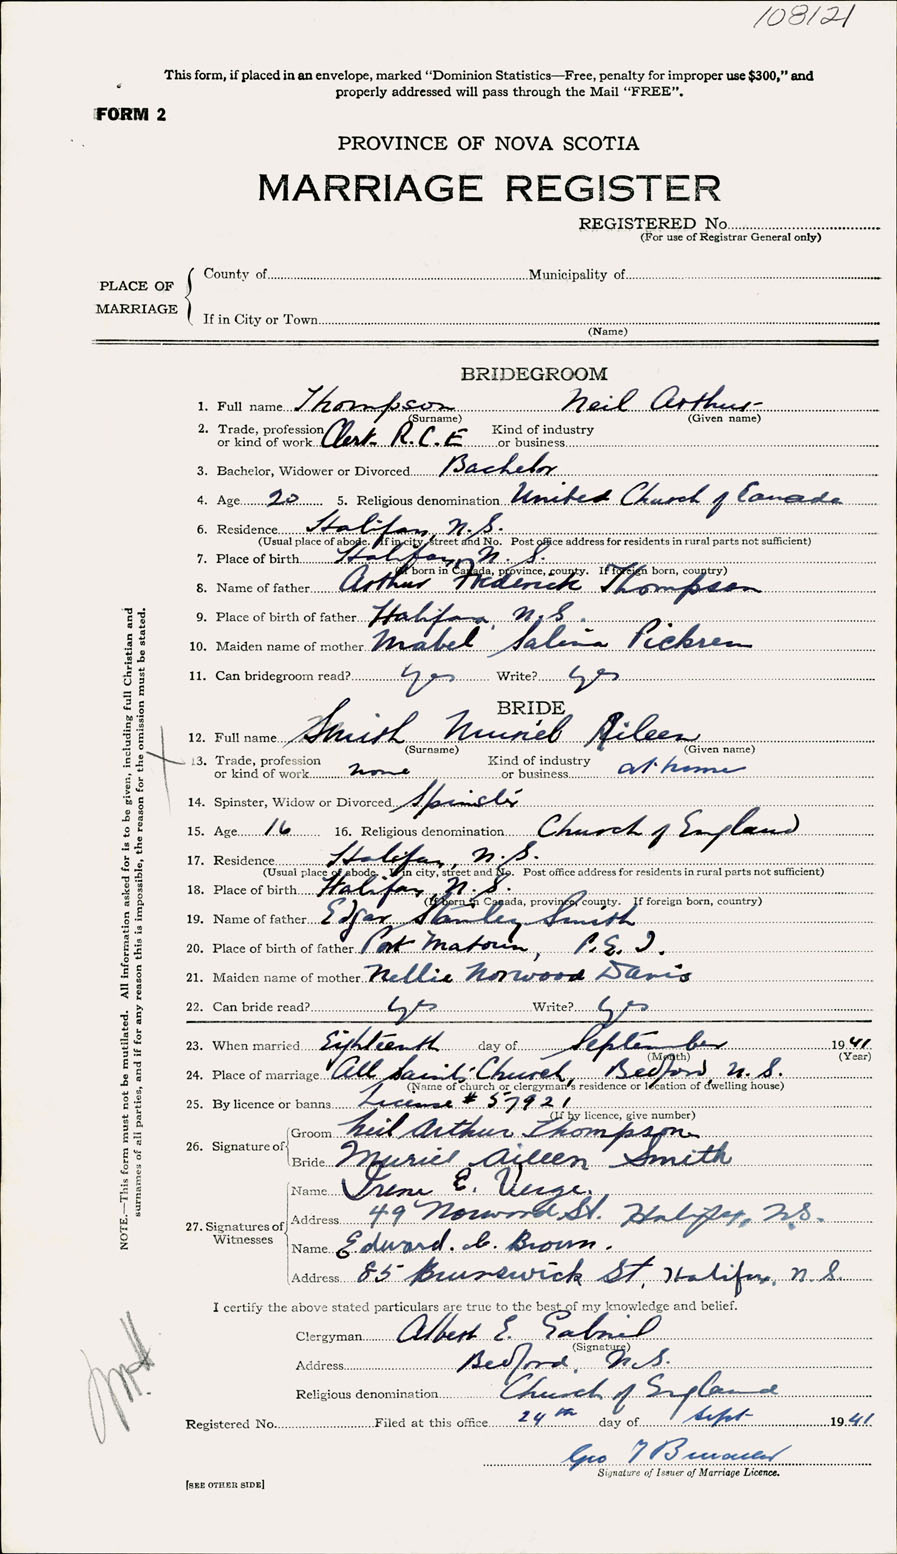 108121
This form, if placed in an envelope, marked “Dominion Statistics—Free, penalty for improper use $300,” and
properly addressed will pass through the Mail “FREE”.
FORM 2
PROVINCE OF NOVA SCOTIA
MARRIAGE REGISTER
REGISTERED No.
(For use of Registrar General only)
PLACE OF MARRIAGE
County of Municipality of
If in City or Town
(Name)
BRIDEGROOM
1. Full name Thompson Neil Arthur
(Surname) (Given name)
2. Trade, profession or kind of work Clerk R.C.E Kind of industry or business
3. Bachelor, Widower or Divorced Bachelor
4. Age 20 5. Religious denomination United Church of Canada
6. Residence Halifax, N.S.
(Usual place of abode. If in city, street and No. Post office address for residents in rural parts not sufficient)
7. Place of birth Halifax, N.S.
(If born in Canada, province, county. If foreign born, country)
8. Name of father Arthur Frederick Thompson
9. Place of birth of father Halifax, N.S.
10. Maiden name of mother Mabel Salina Pickrem
11. Can bridegroom read? yes Write? yes
BRIDE
12. Full name Smith Muriel Aileen
(Surname) (Given name)
13. Trade, profession or kind of work none Kind of industry or business at home
14. Spinster, Widow or Divorced Spinster
15. Age 16 16. Religious denomination Church of England
17. Residence Halifax, N.S.
(Usual place of abode. If in city, street and No. Post office address for residents in rural parts not sufficient)
18. Place of birth Halifax, N.S.
(If born in Canada, province, county. If foreign born, country)
19. Name of father Edgar Stanley Smith
20. Place of birth of father Port P.E.I.
21. Maiden name of mother Nellie Norwood Davis
22. Can bride read? yes Write? yes
23. When married Eighteenth day of September 1941
(Month) (Year)
24. Place of marriage All Saints Church, Bedford N.S.
(Name of church or clergyman's residence or location of dwelling house)
25. By licence or banns License # 57921
(If by licence, give number)
26. Signature of
Groom Neil Arthur Thompson
Bride Muriel Aileen Smith
27. Signatures of Witnesses
Name Irene E. Verge.
Address 49 Norwood St. Halifax, N.S.
Name Edward. C. Brown.
Address 85 Brunswick St, Halifax, N.S.
I certify the above stated particulars are true to the best of my knowledge and belief.
Clergyman Albert E. Gabriel
(Signature)
Address Bedford, N.S.
Religious denomination Church of England
Registered No. Filed at this office 24th day of Sept 1941
Geo
Signature of Issuer of Marriage Licence.
[SEE OTHER SIDE]
NOTE.—This form must not be mutilated. All Information asked for is to be given, including full Christian and
surnames of all parties, and if for any reason this is impossible, the reason for the omission must be stated.